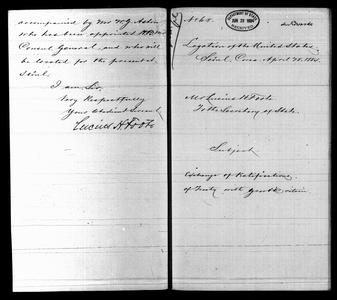 accompanied by Mr W. G. Aston
who has been appointed H.B.M's
Consul General, and who will
be located for the present at
Seoul.
I am Sir,
Very Respectfully
Your Obedient Servant
Lucius H Foote
No 68.
DEPARTMENT OF STATE
JUN 23 1884
RECEIVED
Legation of the United States
Seoul, Corea April 28. 1884.
Mr Lucius H Foote
To the Secretary of State.
Subject
Exchange of Ratifications
of Treaty with Great Britain